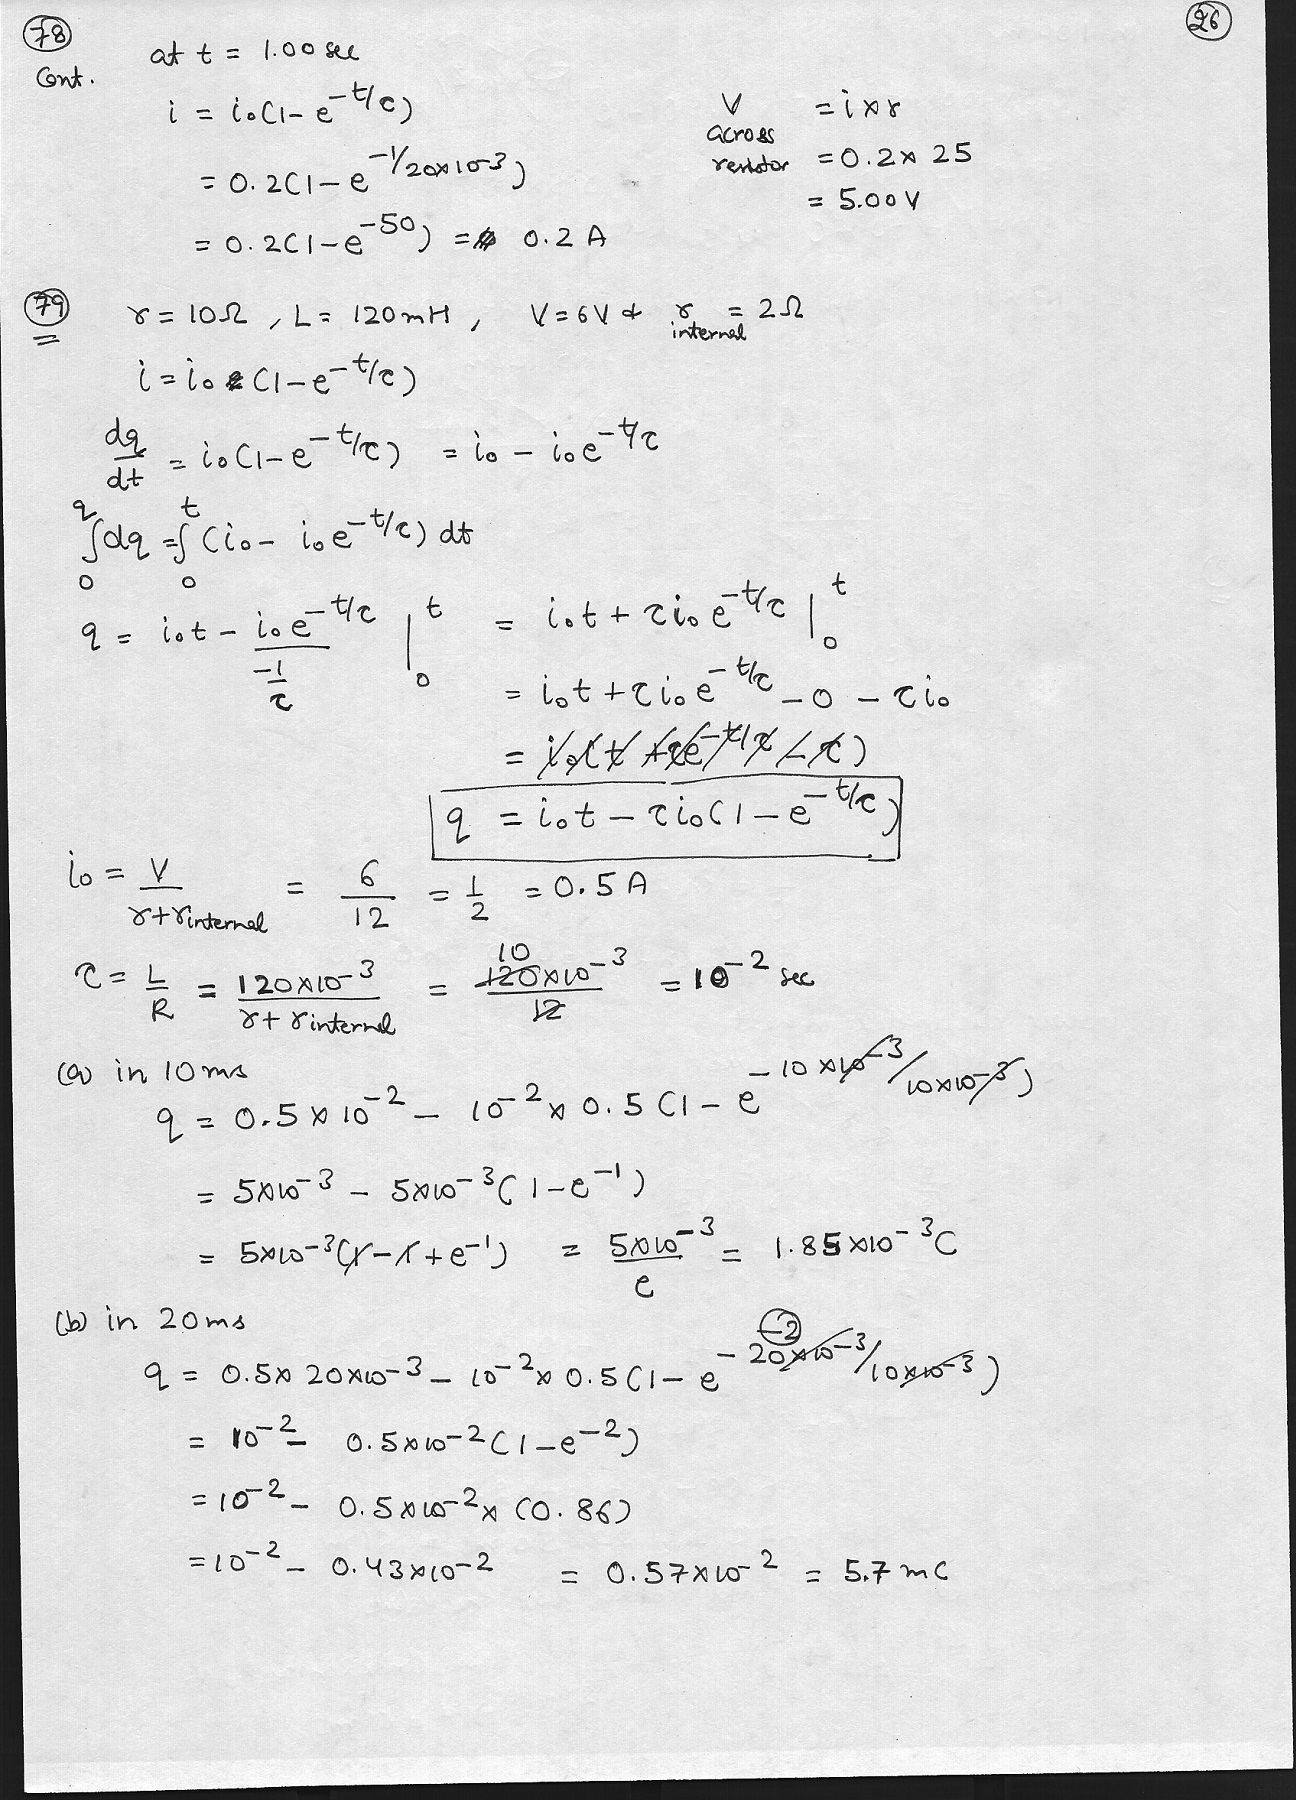 78 26
Cont. at t = 1.00 sec
i = i₀(1- e^-t/τ)
= 0.2(1-e^-1/20×10-3)
= 0.2(1-e^-50) = 0.2 A
V across resistor = i×r
= 0.2× 25
= 5.00V
79 r = 10Ω , L = 120mH , V=6V & r internal = 2Ω
i = i₀ (1-e^-t/τ)
dq/dt = i₀(1-e^-t/τ) = i₀ - i₀e^-t/τ
∫₀^q dq = ∫₀^t (i₀- i₀e^-t/τ) dt
q = i₀t - i₀e^-t/τ / (-1/τ) |₀^t = i₀t + τi₀e^-t/τ |₀^t
= i₀t + τi₀e^-t/τ - 0 - τi₀
= i₀(t + τe^-t/τ - τ)
q = i₀t - τi₀(1-e^-t/τ)
i₀ = V/(r+r internal) = 6/12 = 1/2 = 0.5 A
τ = L/R = 120×10-3/(r+r internal) = 10 120×10-3/12 = 10-2 sec
(a) in 10ms
q = 0.5×10-2 - 10-2×0.5(1-e^-10×10-3/10×10-3)
= 5×10-3 - 5×10-3(1-e-1)
= 5×10-3(1-1+e-1) = 5×10-3/e = 1.85×10-3C
(b) in 20ms
-2
q = 0.5× 20×10-3 - 10-2×0.5(1-e^-20×10-3/10×10-3)
= 10-2 - 0.5×10-2(1-e-2)
= 10-2 - 0.5×10-2×(0.86)
= 10-2 - 0.43×10-2 = 0.57×10-2 = 5.7 mC